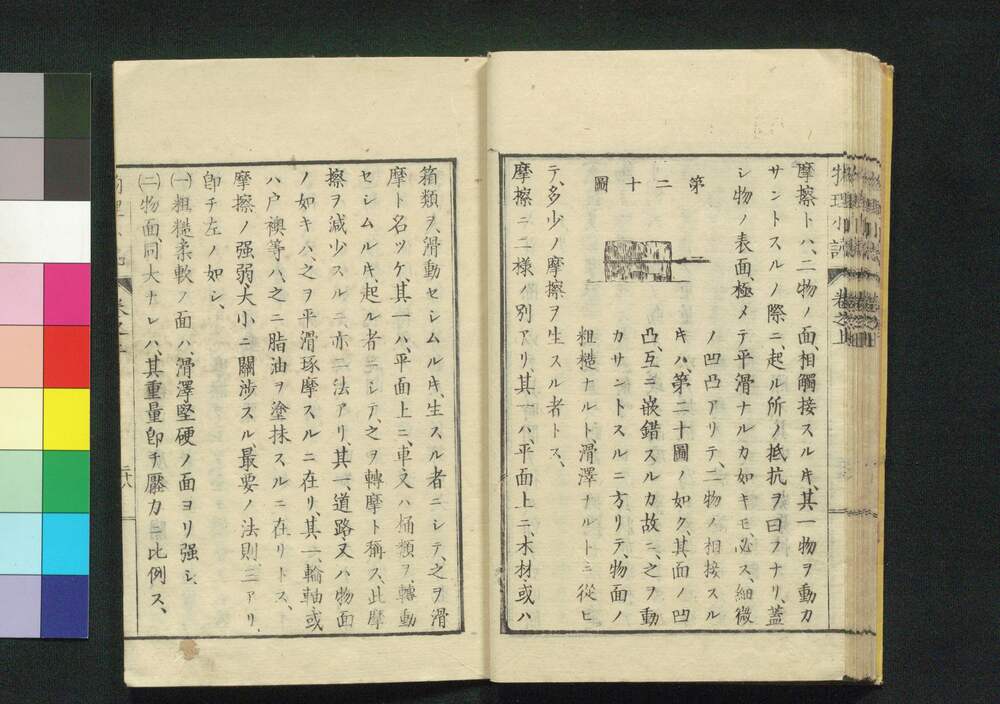 物理小誌 卷之上
摩擦トハ、二物ノ面、相觸接スルキ、其一物ヲ動カ
サントスルノ際ニ、起ル所ノ抵抗ヲ曰フナリ、蓋
シ物ノ表面、極メテ平滑ナルカ如キモ、必ス、細微
ノ凹凸アリテ、二物ノ相接スル
キハ、第二十圖ノ如ク、其面ノ凹
凸、互ニ嵌錯スルカ故ニ、之ヲ動
カサントスルニ方リテ、物面ノ
粗糙ナルト滑澤ナルトニ從ヒ
第二十圖
テ、多少ノ摩擦ヲ生スル者トス、
摩擦ニ二様ノ別アリ、其一ハ、平面上ニ、木材或ハ
箱類ヲ、滑動セシムルキ、生スル者ニシテ、之ヲ滑
摩ト名ツケ、其一ハ、平面上ニ、車又ハ桶類ヲ、轉動
セシムルキ起ル者ニシテ、之ヲ轉摩ト稱ス、此摩
擦ヲ減少スルニ、亦二法アリ、其一、道路又ハ物面
ノ如キハ、之ヲ平滑琢摩スルニ在リ、其一、輪軸或
ハ戸襖等ハ、之ニ脂油ヲ塗抹スルニ在リトス、
摩擦ノ强弱、大小ニ關渉スル、最要ノ法則、三アリ、
卽チ左ノ如シ、
㈠粗糙柔軟ノ面ハ、滑澤堅硬ノ面ヨリ强シ、
㈡物面、同大ナレハ、其重量卽チ壓力ニ比例ス、
二八